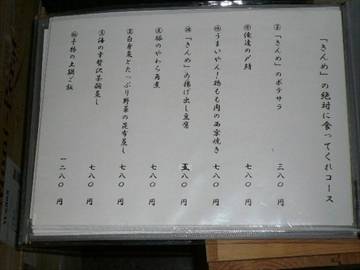 「きんめ」の絶対に食ってくれコース
「きんめ」のポテサラ 三八〇円
俺達の〆鯖 七八〇円
うまいやん！鶏もも肉の西京焼き 七八〇円
「きんめ」の揚げ出し豆腐 五八〇円
豚のやわらか角煮 七八〇円
白身魚とたっぷり野菜の昆布蒸し 七八〇円
海の幸贅沢茶碗蒸し 七八〇円
の土鍋ご飯 一二八〇円